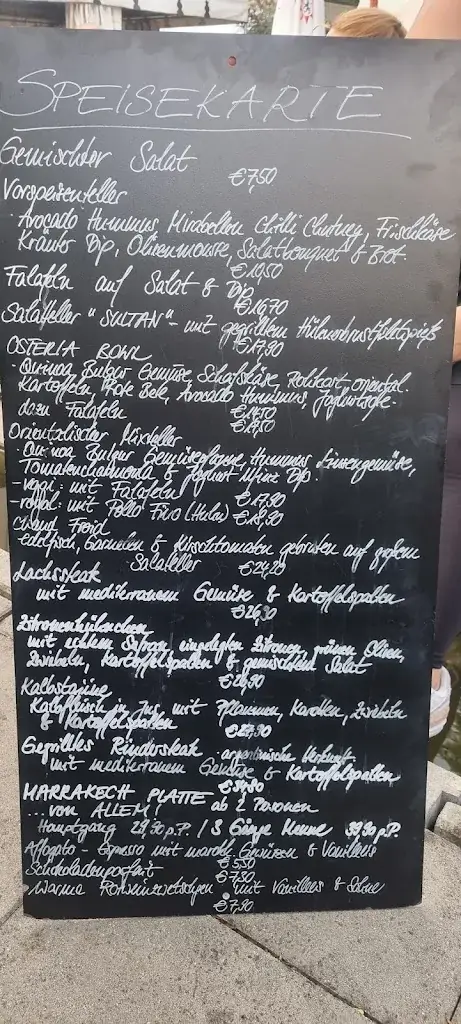 SPEISEKARTE
Gemischter Salat
€7,50
Vorspeisenteller
Avocado Hummus, Mirabellen Chilli Chutney, Frischkäse
Kräuter Dip, Olivenmousse, Salatbouquet & Brot
€10,50
Falafeln auf Salat & Dip
€16,70
Salatteller "SULTAN" - mit gegrilltem Hühnerbrustfiletspieß
€17,90
OSTERIA BOWL
Quinoa, Bulgur Gemüse, Schafskäse, Rotkraut, oriental.
Kartoffeln, Rote Bete, Avocado Hummus, Joghurtsoße
dazu Falafeln
Orientalischer Mixteller
Quinoa Bulgur Hummus, Linsengemüse,
& Joghurt Minz Dip
-vegi: mit Falafeln €17,90
-royal: mit Pollo Fino (Halal) €18,90
Chaud Froid
edelfisch, Garnelen & Kirschtomaten gebraten auf großem
Salatteller €24,20
Lachssteak
mit mediterranem Gemüse & Kartoffelspalten
€26,30
Zitronenhühnchen
mit echtem Safran, eingelegten Zitronen, grünen Oliven,
Zwiebeln, Kartoffelspalten & gemischtem Salat
Kalbstajine
Kalbfleisch in Jus, mit Pflaumen, Karotten, Zwiebeln
& Kartoffelspalten
Gegrilltes Rindersteak argentinische Herkunft
mit mediterranem Gemüse & Kartoffelspalten
MARRAKECH PLATTE ab 2 Personen
...von ALLEM!
Hauptgang 29,90 p.P. / 3 Gänge Menue 39,90 p.P.
Affogato - Espresso mit marokk. Gewürzen & Vanilleeis
€5,50
Schokoladenparfait
€7,30
Warme Rotweinzwetschgen mit Vanilleeis & Sahne
€7,90